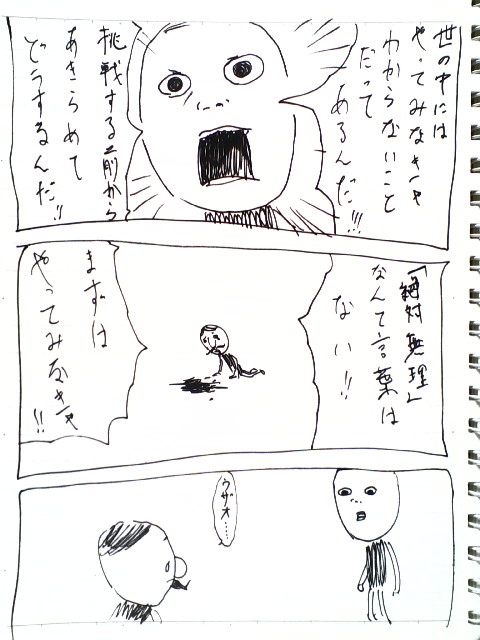 世の中には
やってみなきゃ
わからないこと
だって
あるんだ!!!
挑戦する前から
あきらめて
どうするんだ!!
「絶対無理」
なんて言葉は
ない!!
まずは
やってみなきゃ!!
ウザオ……